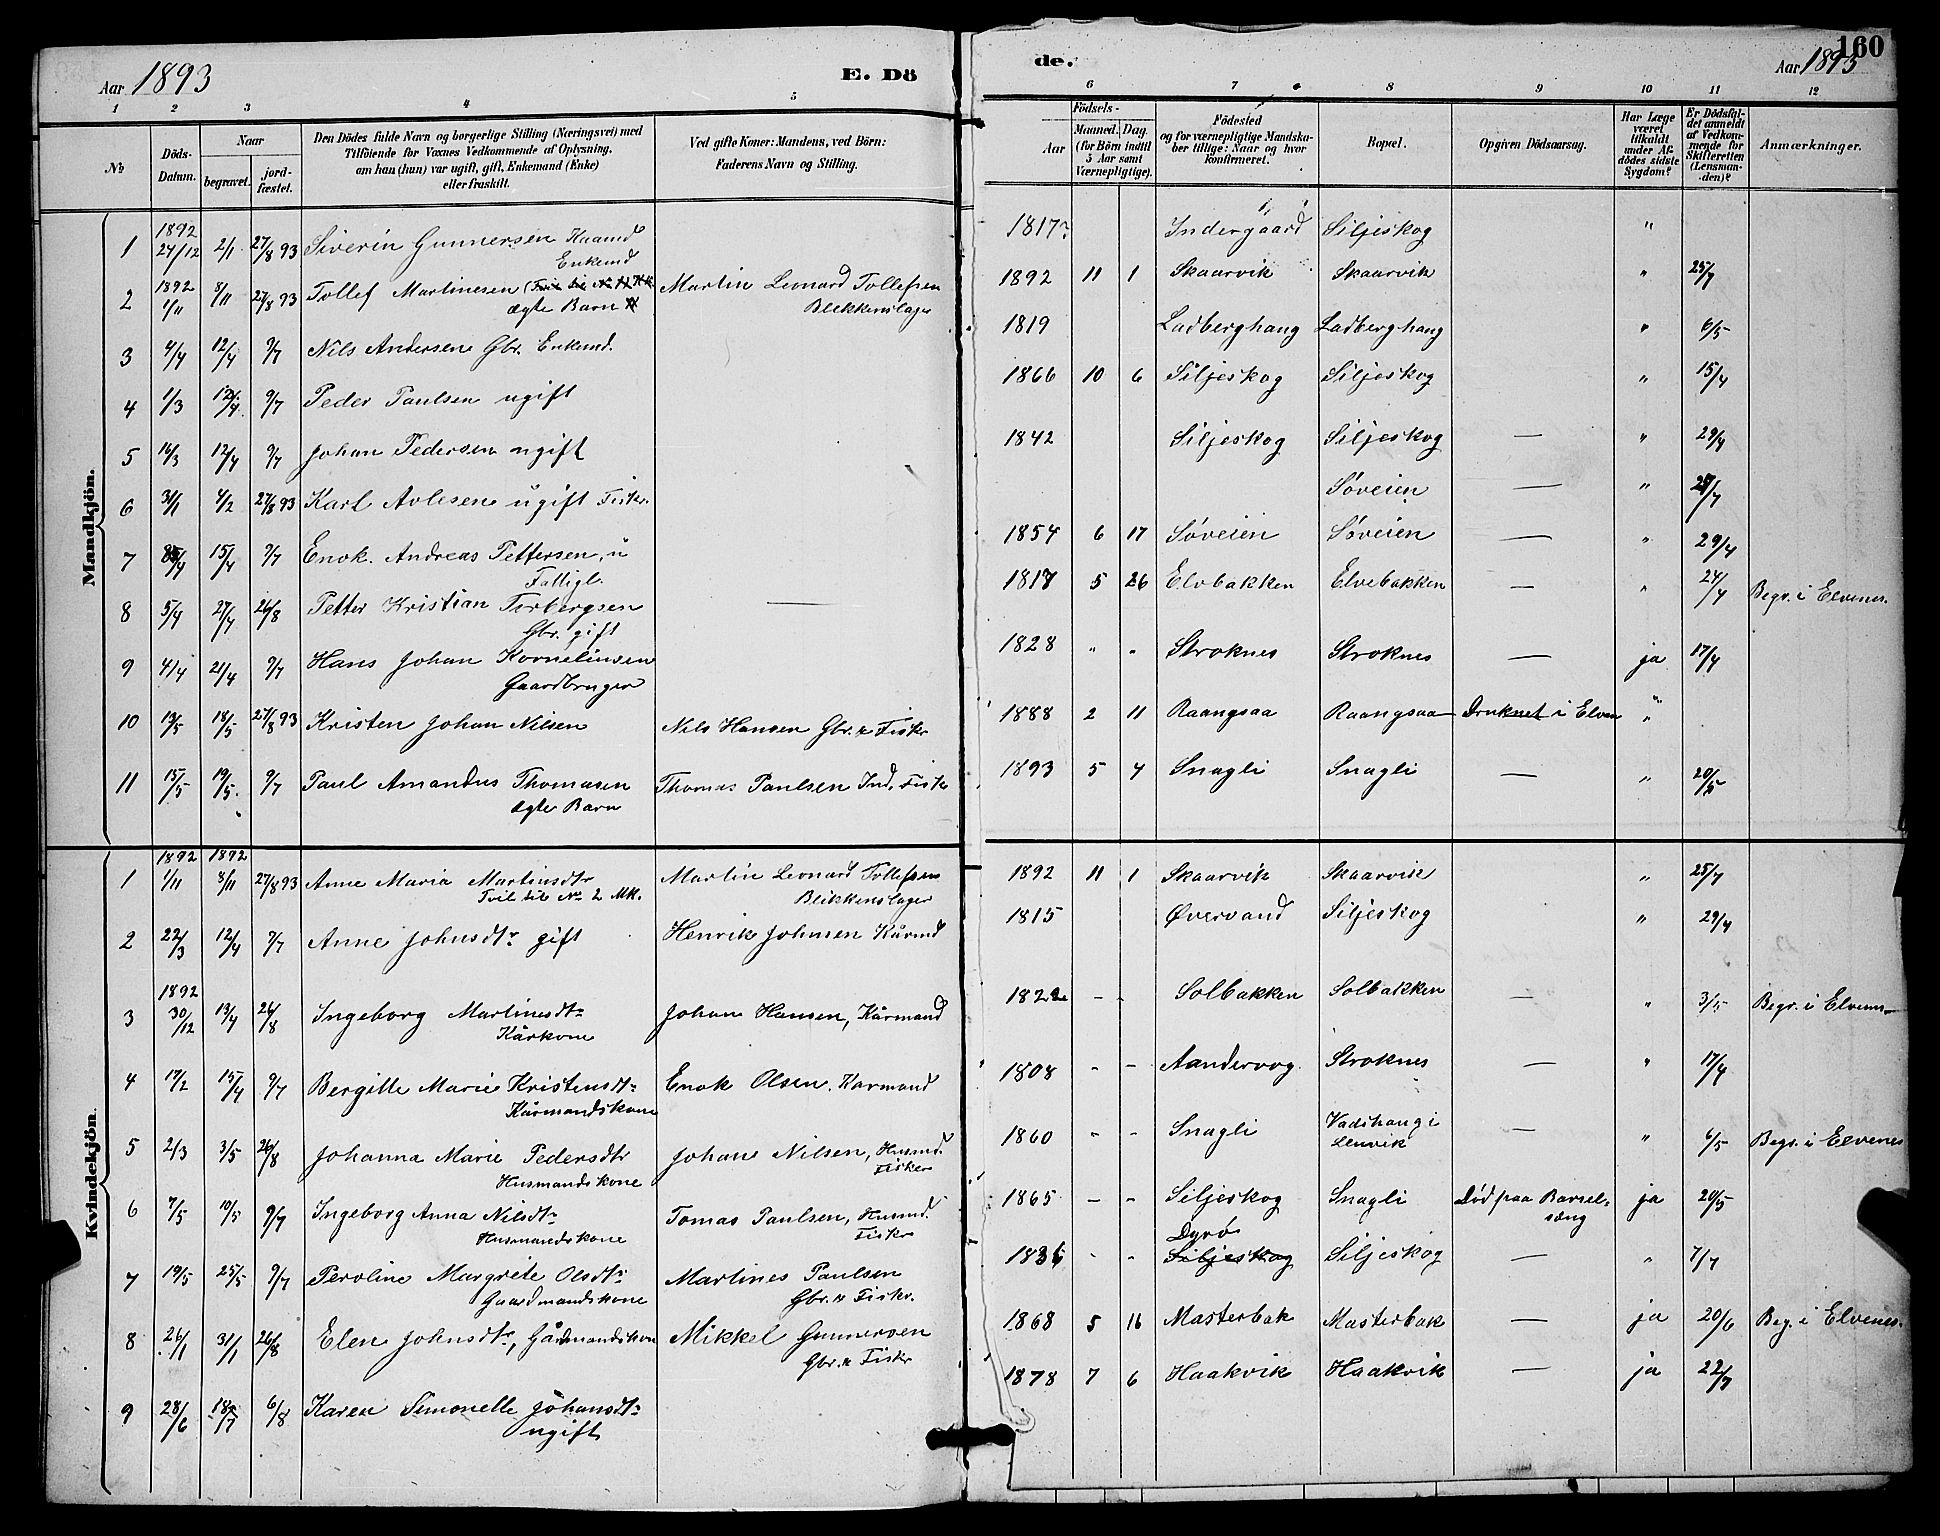 Aar 1893
E. Dö
de.
Aar 1893
160
1 2 3 4 5 6 7 8 9 10 11 12
No
Döds-Datum.
Naar
begravet.
jord-fæstet.
Den Dödes fulde Navn og borgerlige Stilling (Næringsvei) med
Tilföiende for Voxnes Vedkommende af Oplysning,
om han (hun) var ugift, gift, Enkemand (Enke)
eller fraskilt.
Ved gifte Koner: Mandens, ved Börn:
Faderens Navn og Stilling.
Födsels-
Aar
Maaned. Dag.
(for Börn indtil
5 Aar samt
Værnepligtige).
Födested
og for værnepligtige Mandska-
ber tillige: Naar og hvor
konfirmeret.
Bopæl.
Opgiven Dödsaarsag.
Har Læge
været
tilkaldt
under Af-
dödes sidste
Sygdom?
Er Dödsfal-
det anmeldt
af Vedkom-
mende for
Skifteretten
(Lensman-
den)?
Anmærkninger.
Mandkjön.
1 1892 24/12 2/1 27/8 93 Siverin Gunnersen Kaamd Enkemd 1817? Indergaard Siljeskog "
2 1892 1/11 8/11 27/8 93 Tollef Martinesen ægte Barn Martin Leonard Tollefsen Blikkenslager 1892 11 1 Skaarvik Skaarvik " 25/7
3 4/4 12/4 9/7 Nils Andersen Gbr. Enkemd. 1819 Ladberghang Ladberghang " 6/5
4 1/3 12/4 9/7 Peder Paulsen ugift 1866 10 6 Siljeskog Siljeskog " 15/4
5 16/3 12/4 9/7 Johan Pedersen ugift 1842 Siljeskog Siljeskog — " 29/4
6 31/1 4/2 27/8 93 Karl Avlesen ugift Fisker. Søveien — " 25/7
7 15/4 9/7 Enok. Andreas Pettersen, u Fattigl. 1854 6 17 Søveien Søveien — " 29/4
8 5/4 27/4 26/8 Petter Kristian Torbergsen Gbr. gift — 1817 5 26 Elvbakken Elvebakken — " 24/4 Begr. i Elvenes.
9 4/4 21/4 9/7 Hans Johan Kornelinsen Gaardbruger 1828 " " Stroknes Stroknes — ja 17/4
10 13/5 18/5 27/8 93 Kristen Johan Nilsen Nils Hansen Gbr. & Fiskr 1888 2 11 Raangsaa Raangsaa Druknet i Elven "
11 15/5 19/5. 9/7 Paul Amandus Thomasen ægte Barn Thomas Paulsen Ind. Fiskr 1893 5 4 Snagli Snagli — " 20/5
Kvindekjön.
1 1892 1/11 1892 8/11 27/8 93 Anne Maria Martinsdtr Tvil. til No 2 MK. Martin Leonard Tollefsen Blikkenslager 1892 11 1 Skaarvik Skaarvik " 25/7
2 22/3 12/4 9/7 Anne Johnsdtr gift Henrik Johnsen Kårmd 1815 Øvervand Siljeskog " 29/4
3 1892 30/12 13/4 26/8 Ingeborg Martinesdtr Kårkone Johan Hansen, Kårmand 1822 - - Solbakken Solbakken — " 3/5 Begr. i Elvenes
4 17/2 15/4 9/7 Bergitte Marie Kristensdtr Kårmandskone Enok Olsen. Karmand 1808 - - Aandervog Stroknes — " 17/4
5 2/3 3/5 26/8 Johanna Marie Pedersdtr Husmandskone Johan Nilsen, Husmd. Fisker 1860 - - Snagli Vadshaug i Lenvik — " 6/5 Begr. i Elvenes
6 7/5 10/5 9/7 Ingeborg Anna Nilsdtr Husmandskone Tomas Paulsen, Husmd. Fiskr 1865 - - Siljeskog Snagli Død paa Barsel-sæng ja 20/5
7 19/5 25/5 9/7 Peroline Margrete Olsdtr Gaardmandskone Martines Paulsen Gbr. & Fiskr. 1836 - - Dyrø Siljeskog Siljeskog — " 7/7
8 26/1 31/1 26/8 Elen Johnsdtr, Gårdmandskone Mikkel Gunnersen Gbr. & Fiskr 1868 5 16 Masterbak Masterbak — ja 20/6 Beg. i Elvenes.
9 28/6 18/7 6/8 Karen Simonelle Johansdtr ugift 1878 7 6 Haakvik Haakvik — ja 22/7